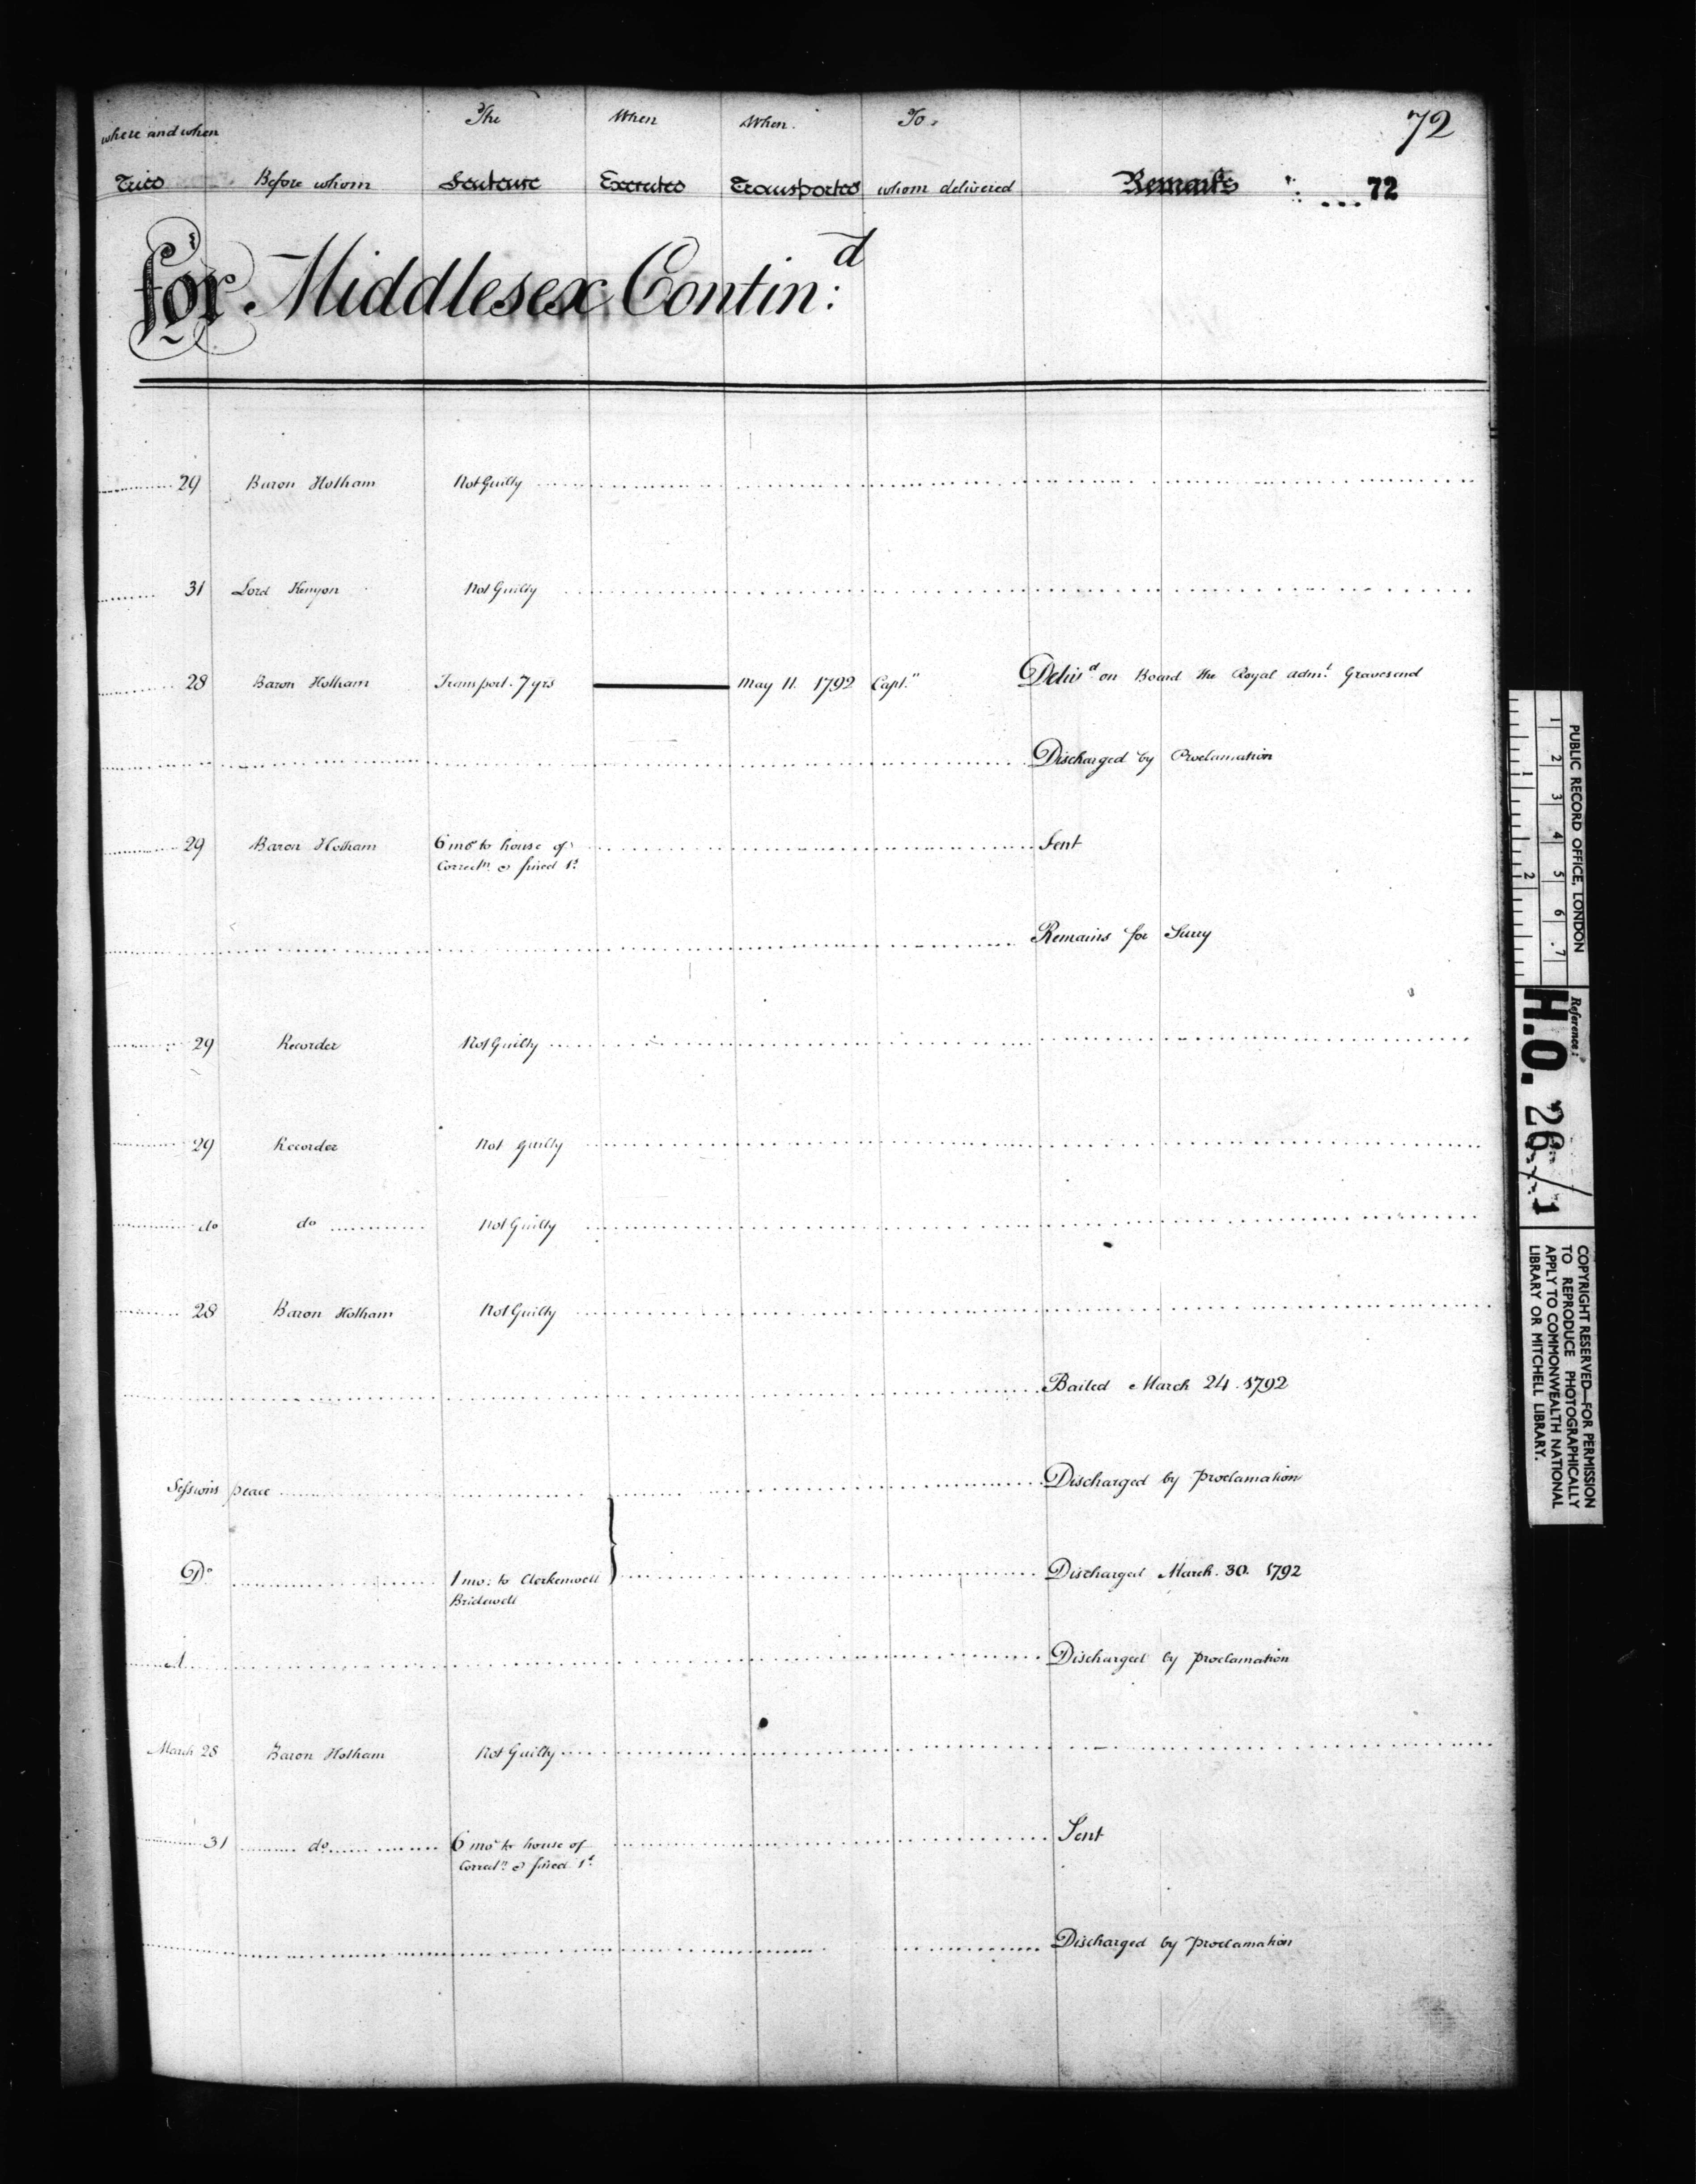 72
where and when The When When To
Tried Before whom Sentence Executed Transported whom delivered Remarks 72
for Middlesex Contin:d
29 Baron Hotham Not Guilty
31 Lord Kenyon Not Guilty
28 Baron Hotham Transport. 7 yrs May 11. 1792 Capt." Deliv'd on Board the Royal adm.l Gravesend
Discharged by Proclamation
29 Baron Hotham 6 mos to house of Sent
Correctn. & fined 1s.
Remains for Surry
29 Recorder Not Guilty
29 Recorder Not guilty
do do Not Guilty
28 Baron Hotham Not Guilty
Bailed March 24. 1792
Sessions peace Discharged by proclamation
Do 1 mo: to Clerkenwell Discharged March. 30. 1792
Bridewell
Discharged by proclamation
March 28 Baron Hotham Not Guilty
31 do 6 mos to house of Sent
Correctn. & fined 1s.
Discharged by proclamation
PUBLIC RECORD OFFICE, LONDON
1 2 3 4 5 6 7
1 2
Reference:
H.O. 26/1
COPYRIGHT RESERVED—FOR PERMISSION
TO REPRODUCE PHOTOGRAPHICALLY
APPLY TO COMMONWEALTH NATIONAL
LIBRARY OR MITCHELL LIBRARY.